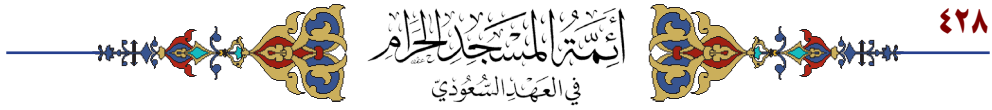 ٤٢٨
أئمة المسجد الحرام
في العهد السعودي